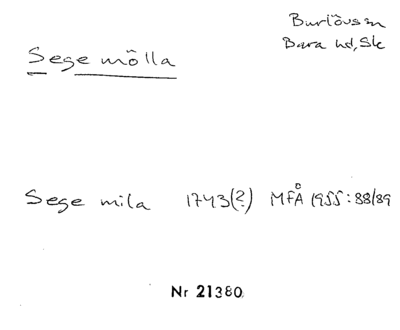 Burlövs sn
Bara hd, Sk
Sege mölla
Sege mila 1743(?) MFÅ 1955:88/89
Nr 21380